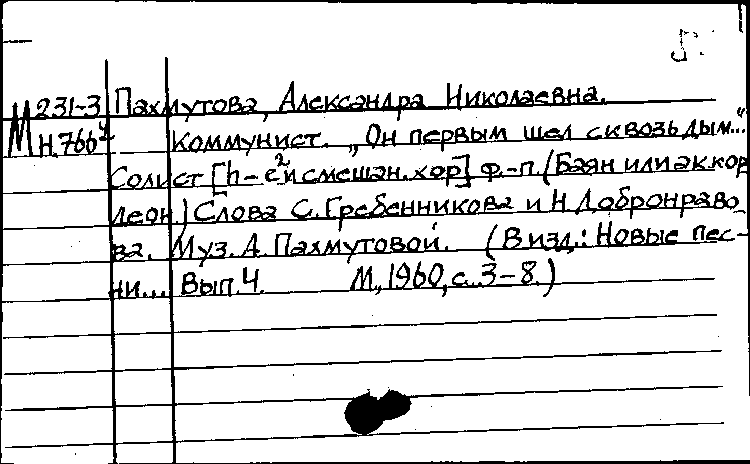 М 231-3 Пахмутова, Александра Николаевна.
Н.766 Коммунист. „Он первым шел сквозь дым..."
Солист [h-е² и смешан. хор] ф.-п. (Баян или аккор
деон.) Слова С. Гребенникова и Н. Добронраво
ва. Муз. А. Пахмутовой. (В изд.: Новые пес-
ни... Вып. 4. М., 1960, с. 3-8.)